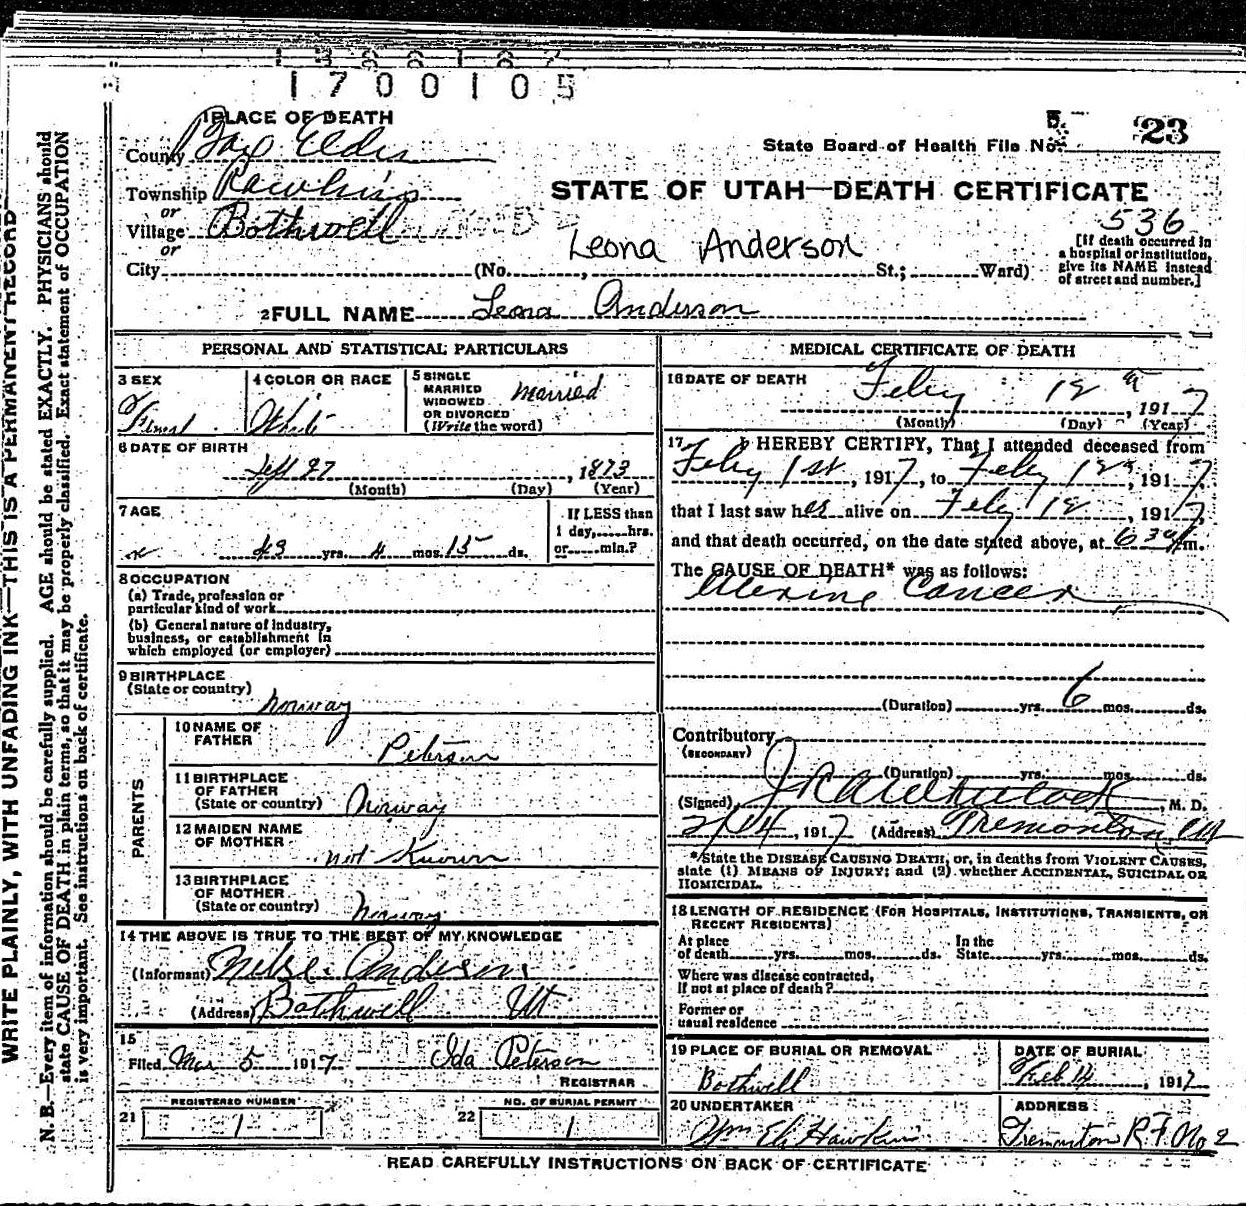 1700105
1 PLACE OF DEATH
County Box Elder
State Board of Health File No. 23
Township Hawkins
STATE OF UTAH—DEATH CERTIFICATE
or
Village Bothwell
536
or
Leona Anderson
[If death occurred in
a hospital or institution,
give its NAME instead
of street and number.]
City (No. , St.; Ward)
2 FULL NAME Leona Anderson
PERSONAL AND STATISTICAL PARTICULARS
3 SEX
Femal
4 COLOR OR RACE
White
5 SINGLE
MARRIED
WIDOWED
OR DIVORCED
(Write the word)
Married
6 DATE OF BIRTH
Sept 27, 1873
(Month) (Day) (Year)
7 AGE
43 yrs. 4 mos. 15 ds.
If LESS than
1 day, hrs.
or min.?
8 OCCUPATION
(a) Trade, profession or
particular kind of work
(b) General nature of industry,
business, or establishment in
which employed (or employer)
9 BIRTHPLACE
(State or country)
Norway
PARENTS
10 NAME OF
FATHER
Peterson
11 BIRTHPLACE
OF FATHER
(State or country) Norway
12 MAIDEN NAME
OF MOTHER
not Known
13 BIRTHPLACE
OF MOTHER
(State or country) Norway
14 THE ABOVE IS TRUE TO THE BEST OF MY KNOWLEDGE
(Informant) Anderson
(Address) Bothwell Ut
15
Filed Mar 5 1917 Ida Peterson
REGISTRAR
21 REGISTERED NUMBER
1
22 NO. OF BURIAL PERMIT
1
MEDICAL CERTIFICATE OF DEATH
16 DATE OF DEATH
Feby 12, 1917
(Month) (Day) (Year)
17 I HEREBY CERTIFY, That I attended deceased from
Feby 1st, 1917, to Feby 12, 1917
that I last saw her alive on Feby 12, 1917,
and that death occurred, on the date stated above, at 6 30 a m.
The CAUSE OF DEATH* was as follows:
Uterine Cancer
(Duration) yrs. 6 mos. ds.
Contributory
(SECONDARY)
(Duration) yrs. mos. ds.
(Signed) , M. D.
2/14, 1917 (Address) Tremonton Ut
*State the DISEASE CAUSING DEATH, or, in deaths from VIOLENT CAUSES,
state (1) MEANS OF INJURY; and (2) whether ACCIDENTAL, SUICIDAL OR
HOMICIDAL.
18 LENGTH OF RESIDENCE (FOR HOSPITALS, INSTITUTIONS, TRANSIENTS, OR
RECENT RESIDENTS)
At place
of death yrs. mos. ds.
In the
State yrs. mos. ds.
Where was disease contracted,
If not at place of death?
Former or
usual residence
19 PLACE OF BURIAL OR REMOVAL
Bothwell
DATE OF BURIAL
Feb 14, 1917
20 UNDERTAKER
Wm Eli Hawkins
ADDRESS
Tremonton R.F. No 2
READ CAREFULLY INSTRUCTIONS ON BACK OF CERTIFICATE
WRITE PLAINLY, WITH UNFADING INK—THIS IS A PERMANENT RECORD
N. B.—Every item of information should be carefully supplied. AGE should be stated EXACTLY. PHYSICIANS should
state CAUSE OF DEATH in plain terms, so that it may be properly classified. Exact statement of OCCUPATION
is very important. See instructions on back of certificate.